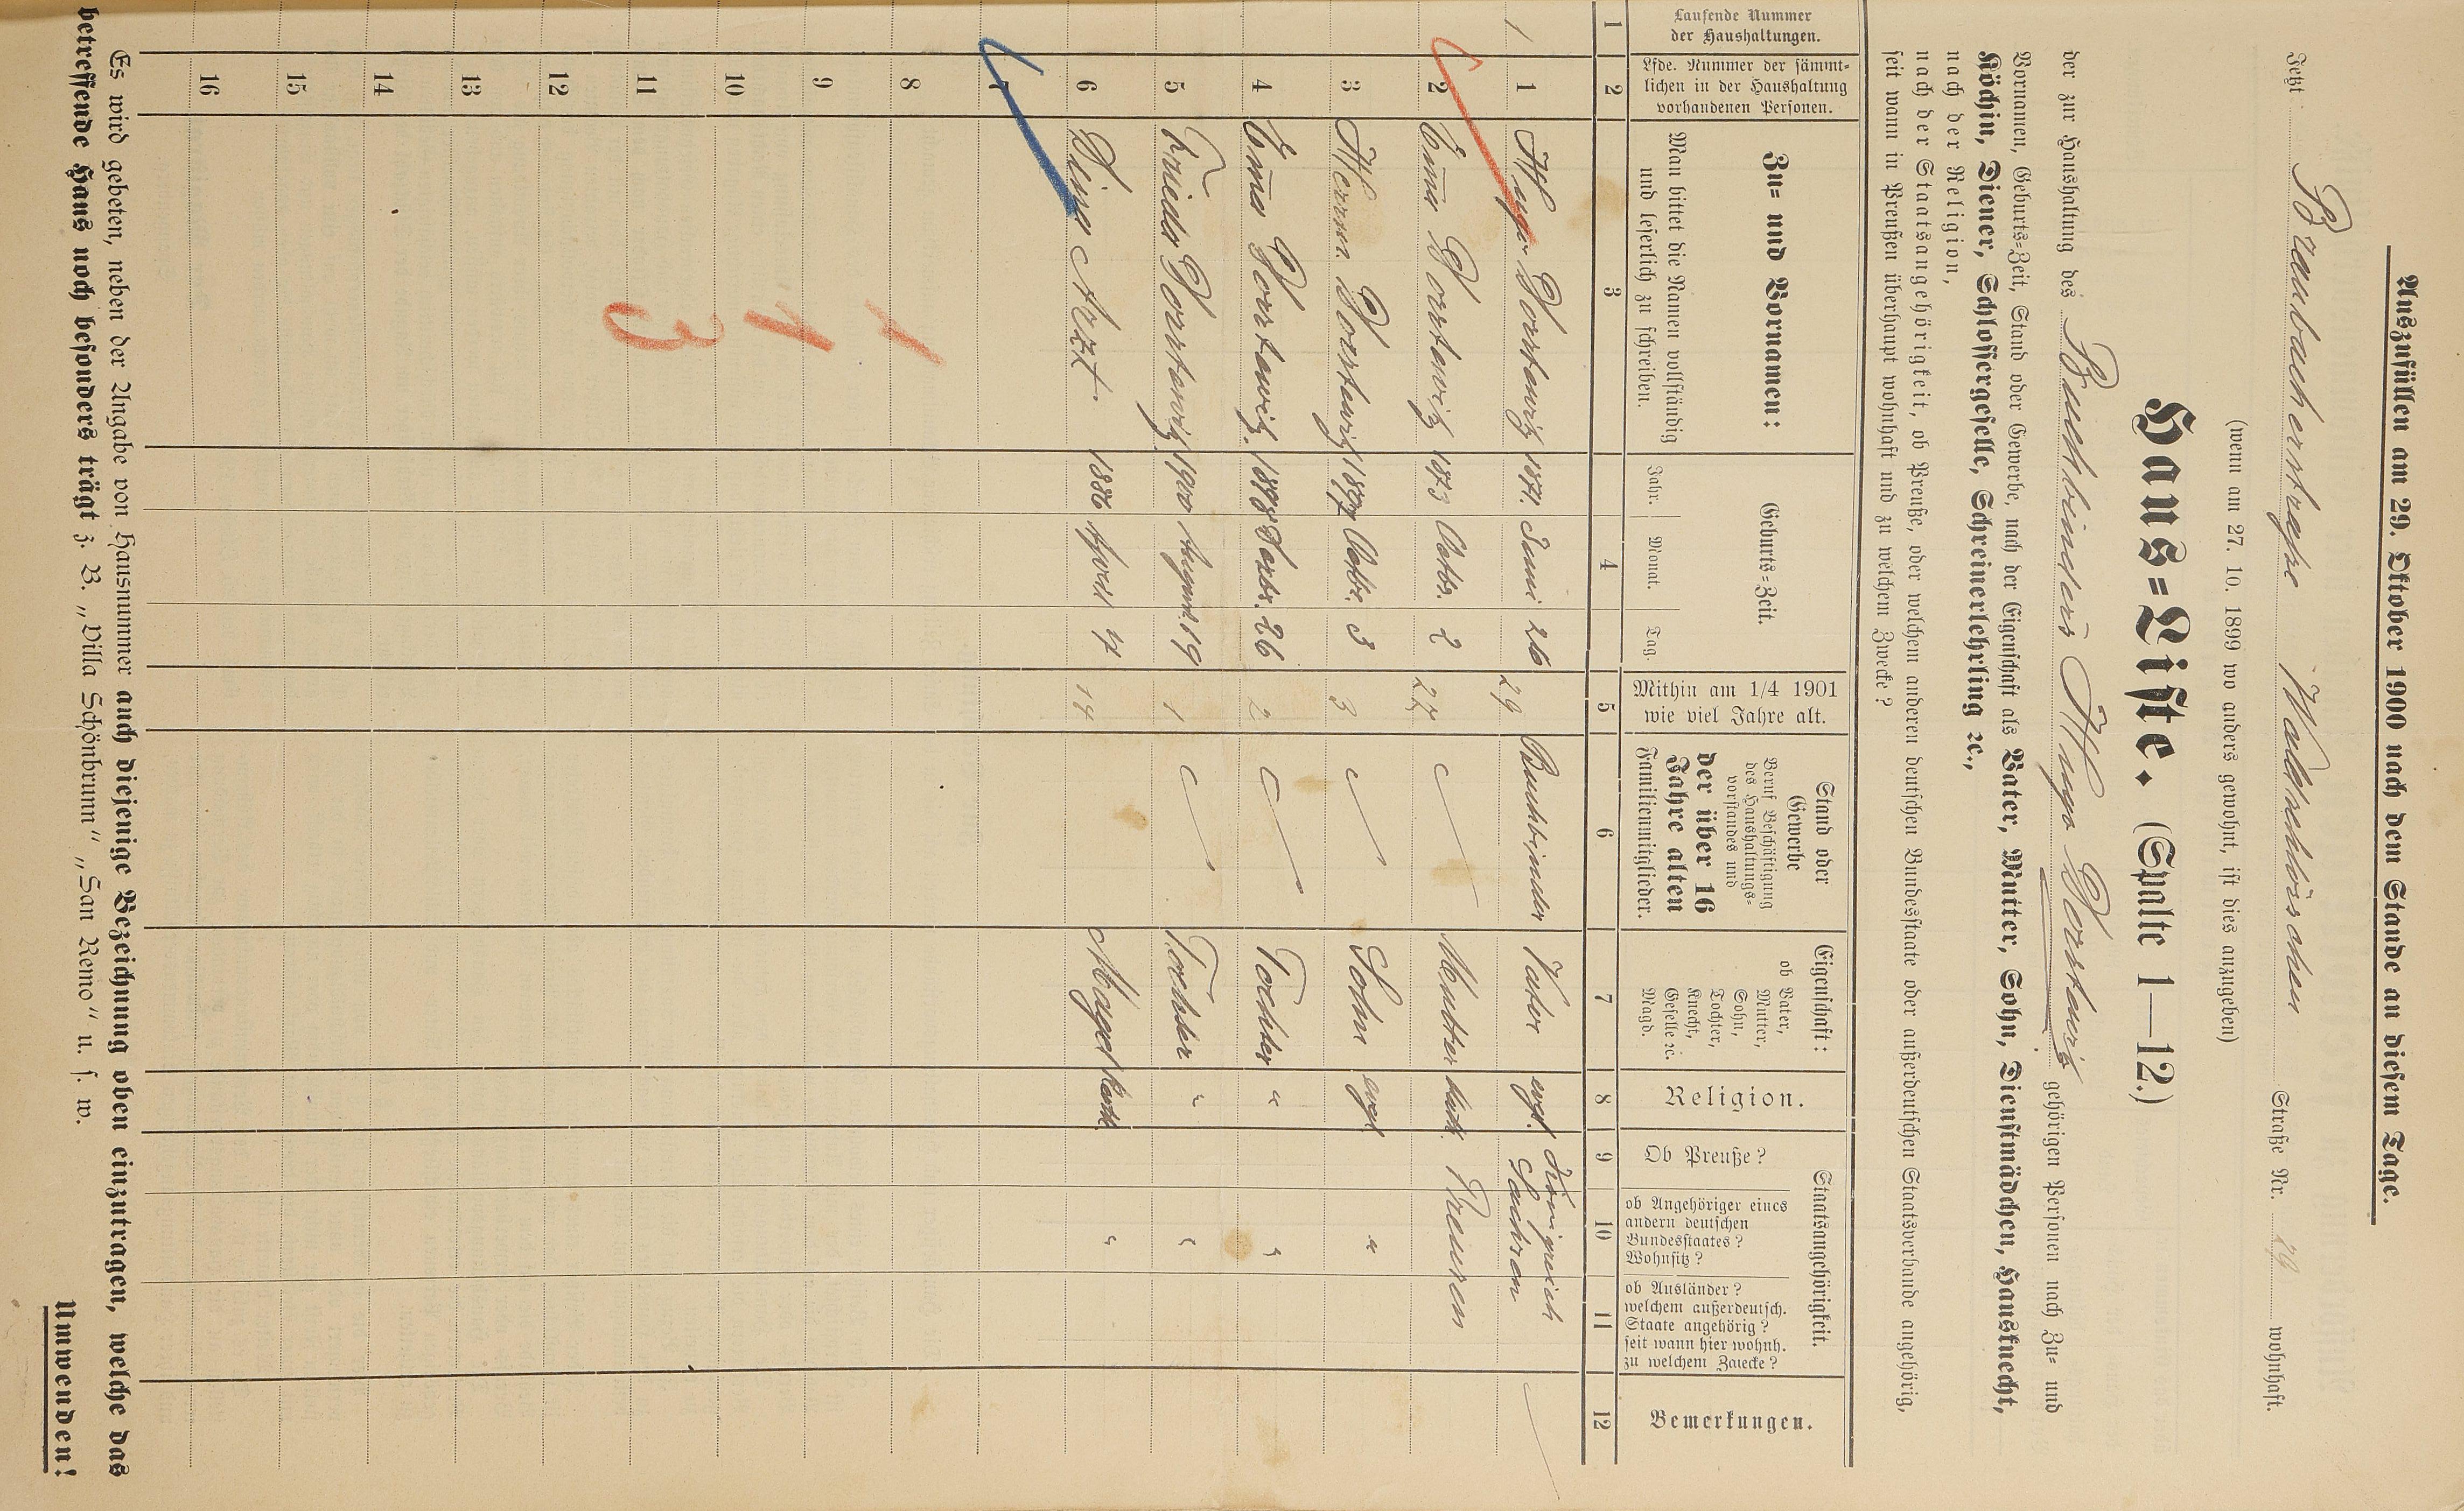 Auszufüllen am 29. Oktober 1900 nach dem Stande an diesem Tage.
Jetzt: Braubacherstraße Waldschlösschen Straße Nr. 29 wohnhaft.
(wenn am 27. 10. 1899 wo anders gewohnt, ist dies anzugeben)
Haus=Liste. (Spalte 1—12.)
der zur Haushaltung des Buchbinders Hugo Vorstawiz gehörigen Personen nach Zu= und
Vornamen, Geburts=Zeit, Stand oder Gewerbe, nach der Eigenschaft als Vater, Mutter, Sohn, Dienstmädchen, Hausknecht,
Köchin, Diener, Schlossergeselle, Schreinerlehrling ꝛc.,
nach der Religion,
nach der Staatsangehörigkeit, ob Preuße, oder welchem anderen deutschen Bundesstaate oder außerdeutschen Staatsverbande angehörig,
seit wann in Preußen überhaupt wohnhaft und zu welchem Zwecke?
Laufende Nummer
der Haushaltungen.
Lfde. Nummer der sämmt=
lichen in der Haushaltung
vorhandenen Personen.
Zu= und Vornamen:
Man bittet die Namen vollständig
und leserlich zu schreiben.
Geburts=Zeit.
Jahr. Monat. Tag.
Mithin am 1/4 1901
wie viel Jahre alt.
Stand oder
Gewerbe
Beruf Beschäftigung
des Haushaltungs=
vorstandes und
der über 16
Jahre alten
Familienmitglieder.
Eigenschaft:
ob Vater,
Mutter,
Sohn,
Tochter,
Knecht,
Geselle ꝛc.
Magd.
Religion.
Staatsangehörigkeit.
Ob Preuße?
ob Angehöriger eines
andern deutschen
Bundesstaates?
Wohnsitz?
ob Ausländer?
welchem außerdeutsch.
Staate angehörig?
seit wann hier wohnh.
zu welchem Zwecke?
Bemerkungen.
1 2 3 4 5 6 7 8 9 10 11 12
1 1 Hugo 1871. Juni 26 29 Buchbinder Vater evgl. Königreich Sachsen
2 Em̄a 1873 Octbr. 2 27 Mutter kath. Preusen
3 1897 Octbr. 3 3 Sohn evgl "
4 Em̄a 1898 26 2 Tochter " "
5 Frieda 1900 August 19 1 Tochter " "
6 Dina Arzt. 1886 April 7 14 Magd kath. "
7
8
9
10
11
12
13
14
15
16
1
1
3
Es wird gebeten, neben der Angabe von Hausnummer auch diejenige Bezeichnung oben einzutragen, welche das
betreffende Haus noch besonders trägt z. B. „Villa Schönbrunn" „San Remo" u. s. w.
Umwenden!